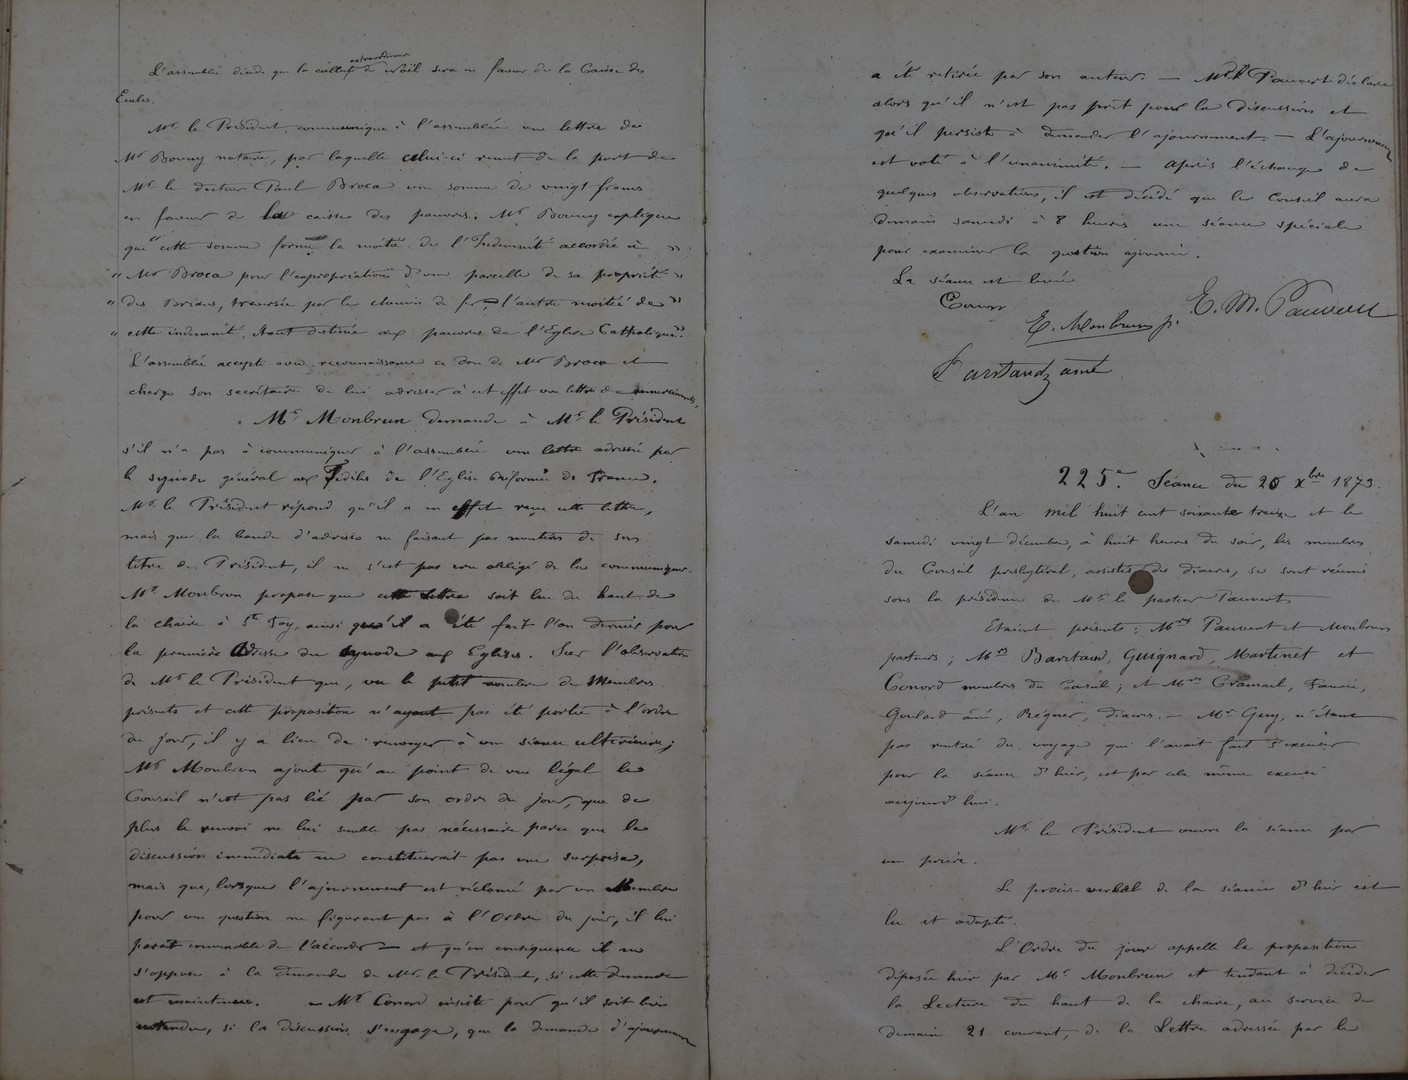 L'assemblée décide que la collecte extraordinaire de Noël sera en faveur de la Caisse des
Ecoles.
Mr le Président communique à l'assemblée une lettre de
Mr Bouny notaire, par laquelle celui-ci remet de la part de
Mr le docteur Paul Broca une somme de vingt francs
en faveur de la caisse des pauvres. Mr Bouny explique
que "cette somme forme la moitié de l'Indemnité accordée à "
" Mr Broca pour l'expropriation d'une parcelle de sa propriété "
" des Briands, traversée par le chemin de fer, l'autre moitié de "
" cette indemnité étant destinée aux pauvres de l'Eglise Catholique."
L'assemblée accepte avec reconnaissance ce don de Mr Broca et
charge son secrétaire de lui adresser à cet effet une lettre de remerciements.
Mr Monbrun demande à Mr le Président
s'il n'a pas à communiquer à l'assemblée une lettre adressée par
le synode général aux Fidèles de l'Eglise Réformée de France.
Mr le Président répond qu'il a en effet reçu cette lettre,
mais que la bande d'adresse ne faisant pas mention de son
titre de Président, il ne s'est pas cru obligé de la communiquer.
Mr Monbrun propose que cette lettre soit lue du haut de
la chaire à Ste Foy, ainsi qu'il a été fait l'an dernier pour
la première Adresse du synode aux Eglises. Sur l'observation
de Mr le Président que, vu le petit nombre de Membres
présents et cette proposition n'ayant pas été portée à l'ordre
du jour, il y a lieu de renvoyer à une séance ultérieure;
Mr Monbrun ajoute qu'au point de vue légal le
Conseil n'est pas lié par son ordre du jour, que de
plus le renvoi ne lui semble pas nécessaire parce que la
discussion immédiate ne constituerait pas une surprise,
mais que, lorsque l'ajournement est réclamé par un Membre
pour une question ne figurant pas à l'Ordre du jour, il lui
parait convenable de l'accorder et qu'en conséquence il ne
s'oppose à la demande de Mr le Président, si cette demande
est maintenue. — Mr Conord insiste pour qu'il soit bien
entendu, si la discussion s'engage, que la demande d'ajournement
a été retirée par son auteur. — Mr le Pr Pauvert déclare
alors qu'il n'est pas prêt pour la discussion et
qu'il persiste à demander l'ajournement. — L'ajournement
est voté à l'unanimité. — Après l'échange de
quelques observations, il est décidé que le Conseil aura
demain samedi à 8 heures une séance spéciale
pour examiner la question ajournée.
La séance est levée
Conord
E. Monbrun p.
E. M. Pauvert
225e Séance du 20 Xbre 1873.
L'an mil huit cent soixante treize et le
samedi vingt décembre, à huit heures du soir, les membres
du Conseil presbytéral, assistés des diacres, se sont réunis
sous la présidence de Mr le pasteur Pauvert.
Etaient présents: Mrs Pauvert et Monbrun
pasteurs; Mrs Baritaud, Guignard, Martinet et
Conord membres du Conseil; et Mrs Cramail,
Goulard ainé, Régner, diacres. — Mr Guy, n'étant
pas rentré du voyage qui l'avait fait s'excuser
pour la séance d'hier, est par cela même excusé
aujourd'hui.
Mr le Président ouvre la séance par
une prière.
Le procès-verbal de la séance d'hier est
lu et adopté.
L'Ordre du jour appelle la proposition
déposée hier par Mr Monbrun et tendant à décider
la Lecture du haut de la chaire, au service de
demain 21 courant, de la Lettre adressée par le